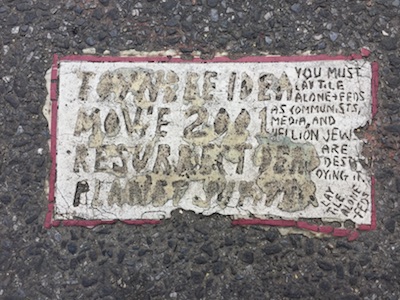 TOYNBEE IDEA
MOViE 2001
RESURRECT DEAD
PLANET JUPITER
YOU MUST
LAY TILE
ALONE + FEDS
AS COMMUNISTS,
MEDIA, AND
HELLION JEW
ARE
DEST
OYING IT.
LAY
TILE
ALONE